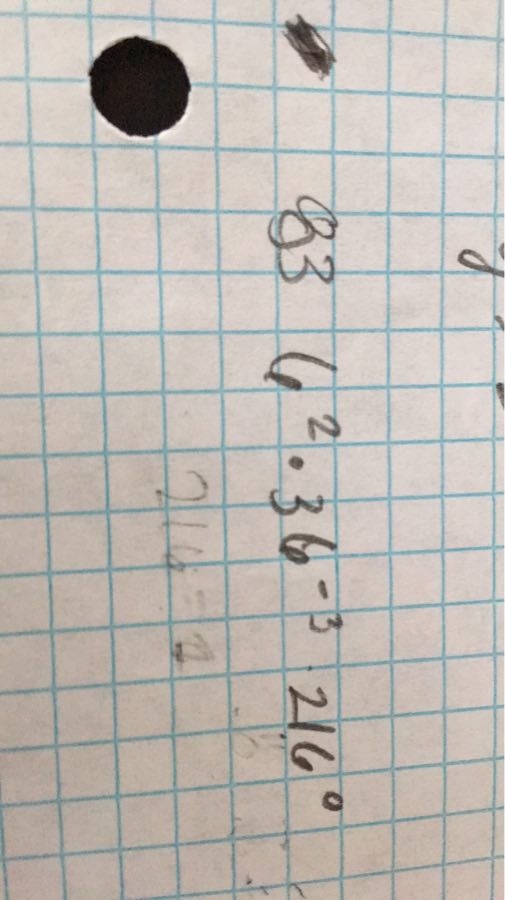 83 6² · 36⁻³ · 216⁰
216 = 1